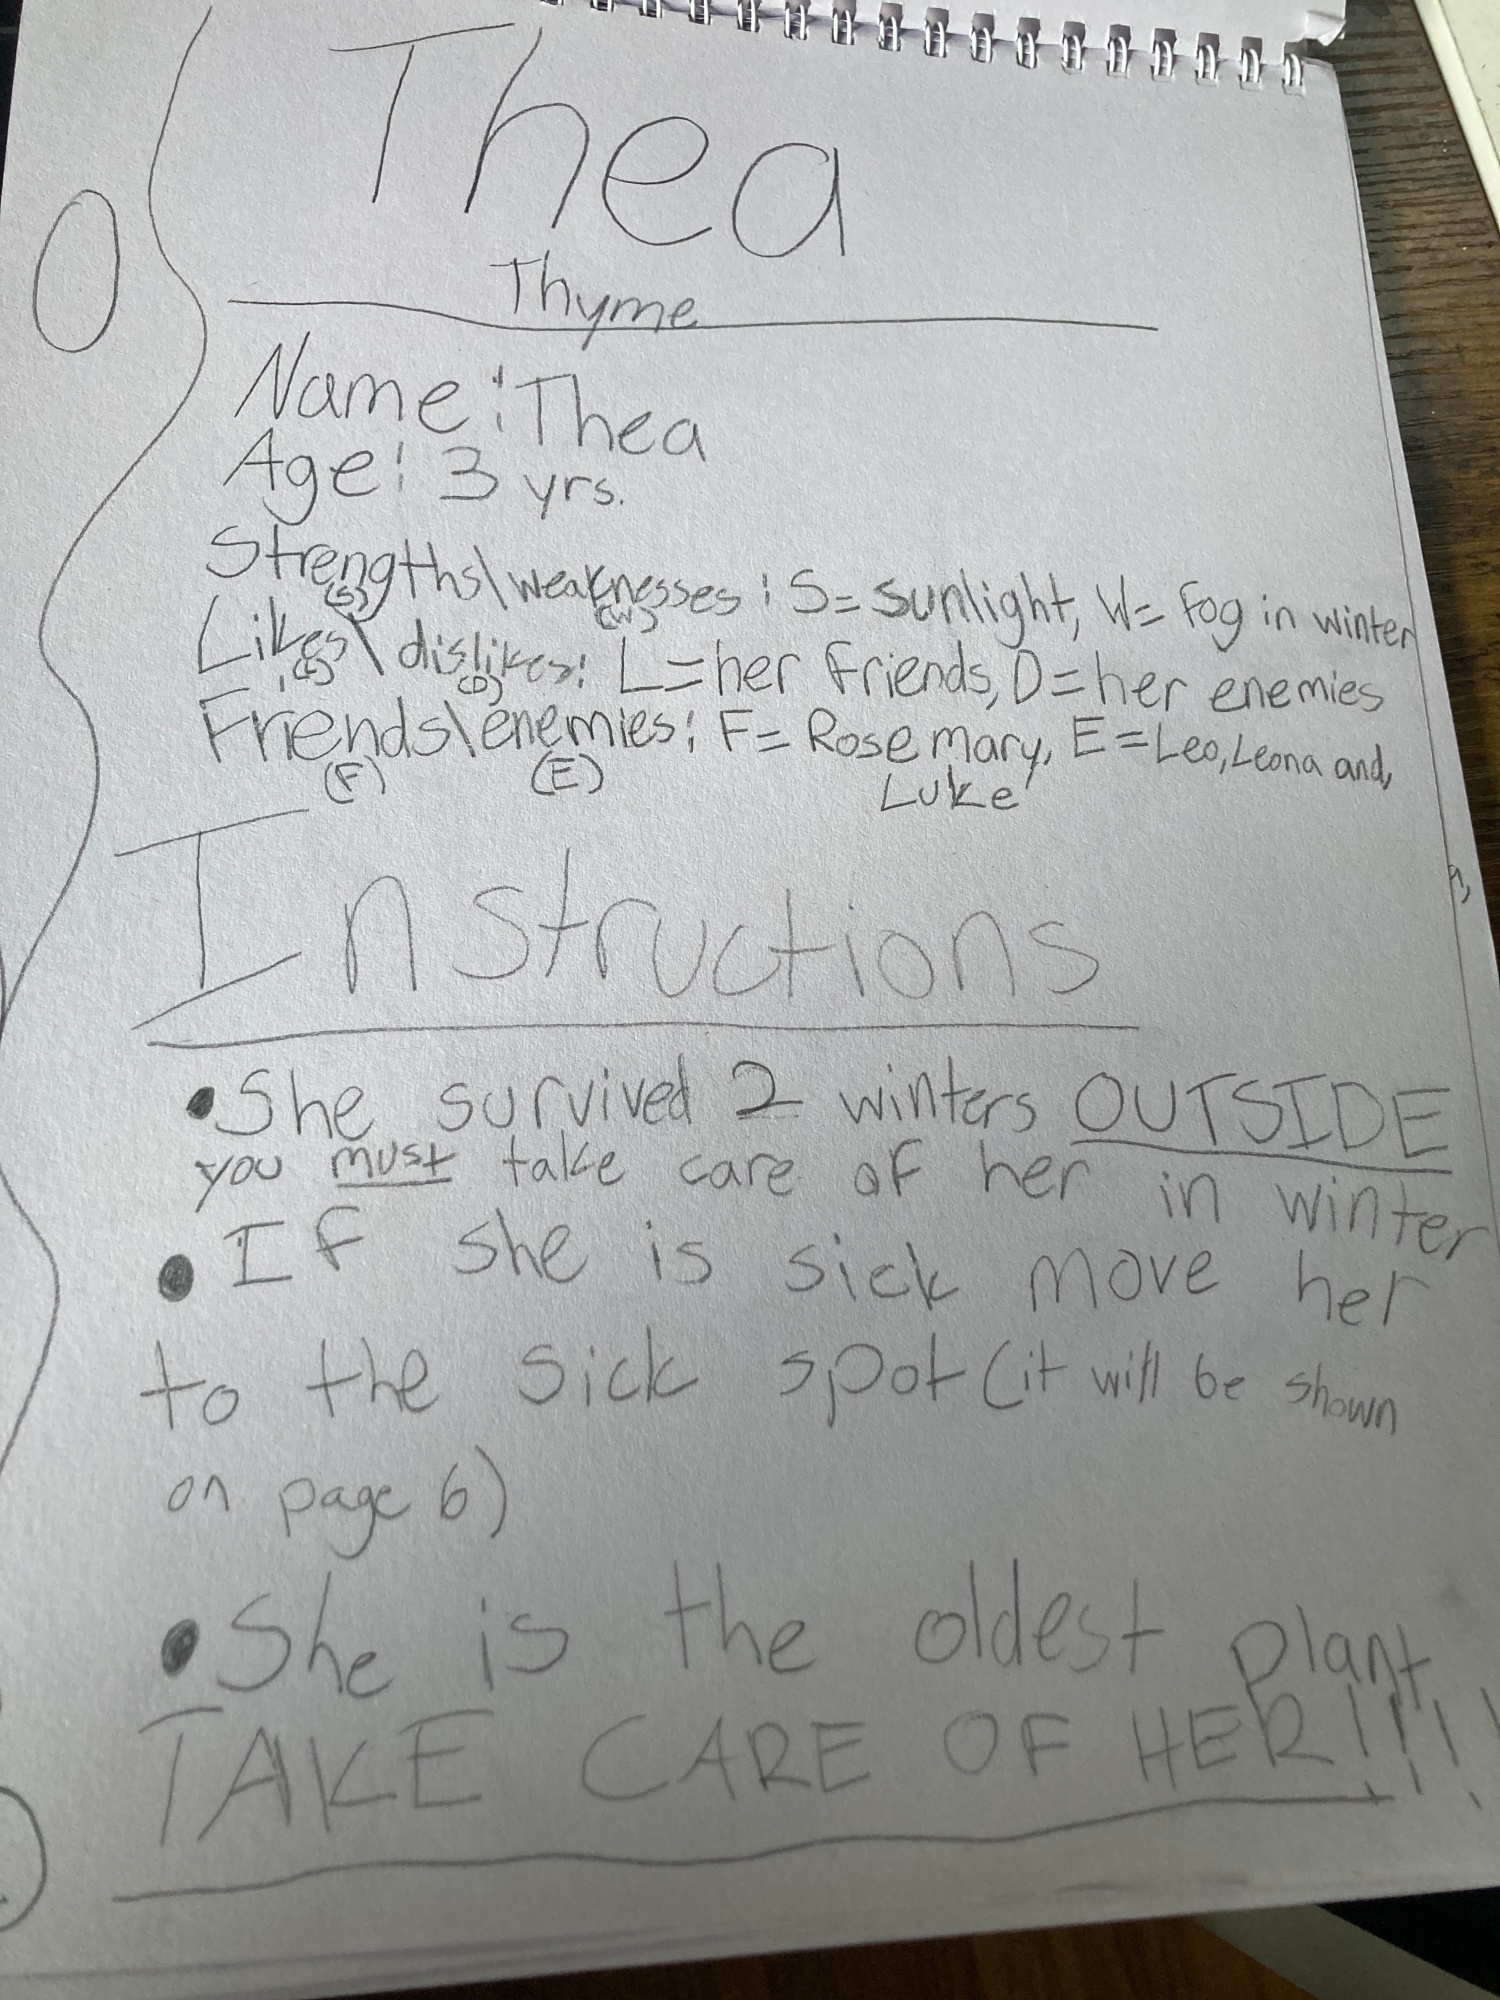 Thea
Thyme
Name: Thea
Age: 3 yrs.
Strengths\weaknesses: S= sunlight, W= Fog in winter
(S) (W)
Likes\dislikes: L=her friends, D=her enemies
(L) (D)
Friends\enemies: F= Rosemary, E=Leo, Leona and,
(F) (E) Luke
Instructions
• She survived 2 winters OUTSIDE
you must take care of her in winter
• If she is sick move her
to the sick spot (it will be shown
on page 6)
• She is the oldest plant
TAKE CARE OF HER!!!!